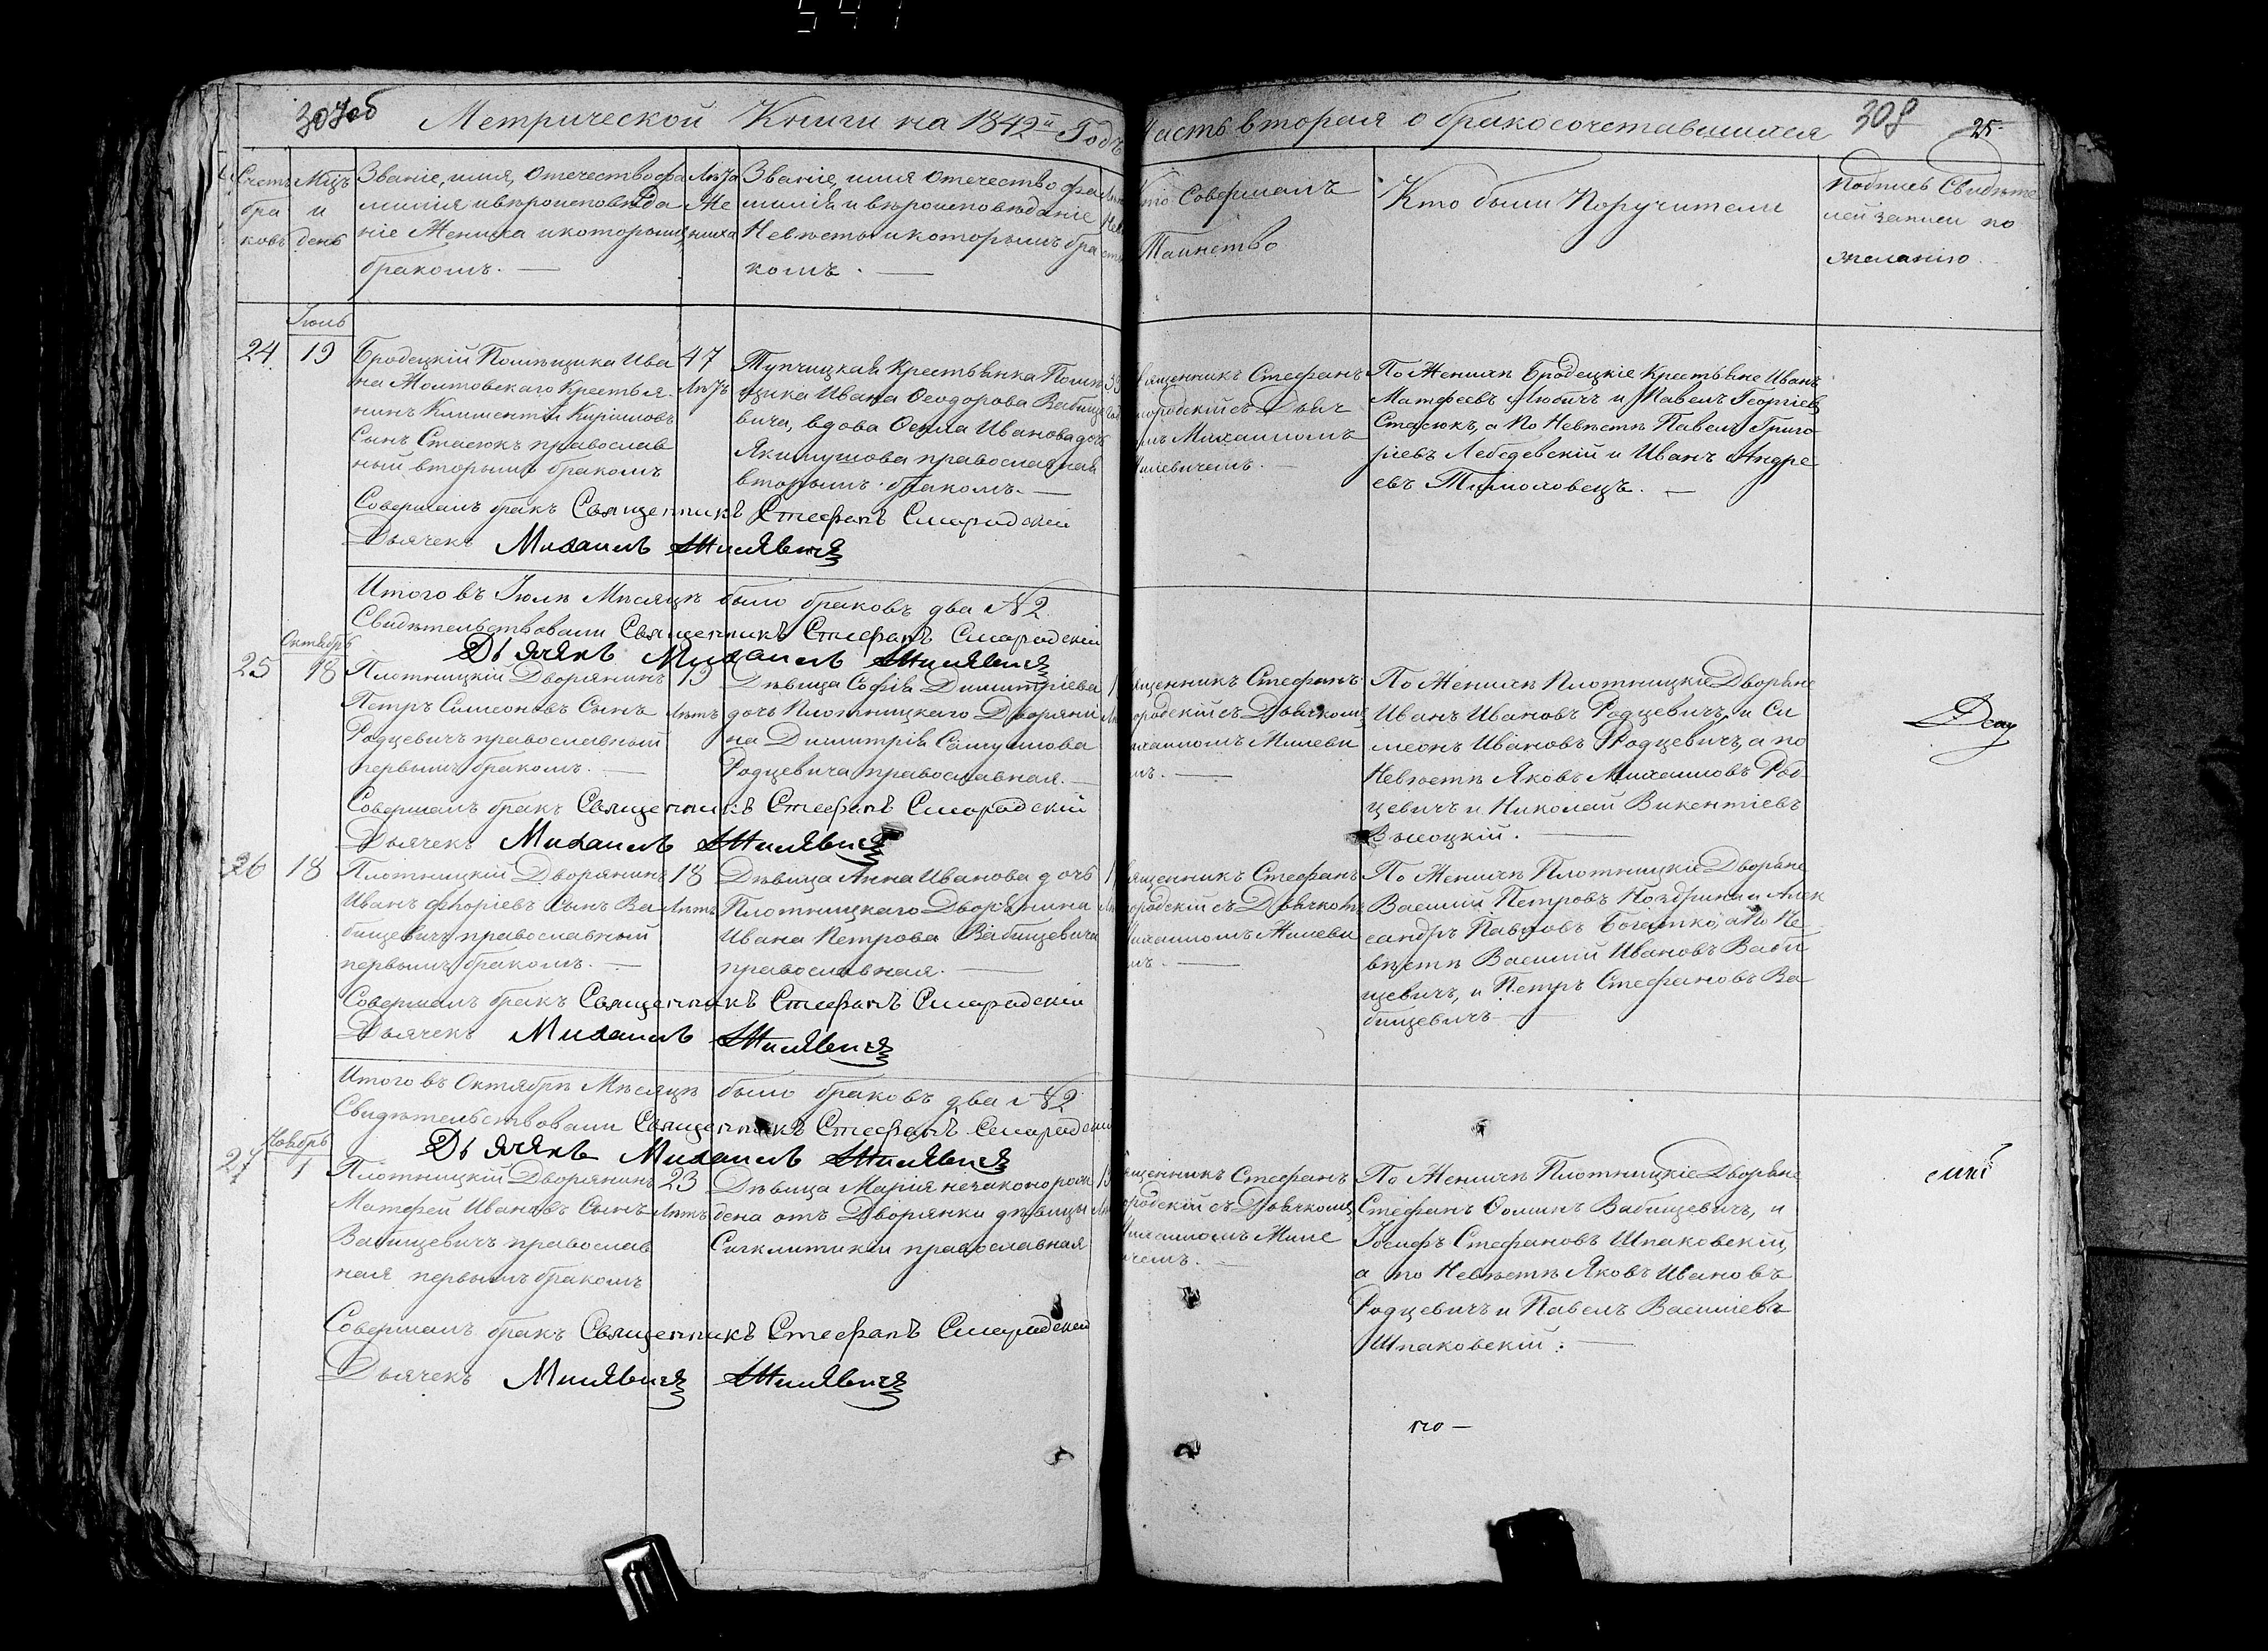 307об Метрической Книги на 1842й Годъ
Часть вторая о бракосочетавшихся 308 25.
Счетъ бра ковъ
Мцъ и день
Званіе, имя, отечество, фа
милія и вѣроисповѣда
ніе Жениха и которымъ
бракомъ. —
Лѣта Же ниха
Званіе, имя отечество фа
милія и вѣроисповѣданіе
Невѣсты и которымъ бра
комъ. —
Кто Совершалъ
Таинство
Кто были Поручители
Подписъ Свидѣте
лей записи по
желанію.
Іюль
24 19
Бродецкій Помѣщика Ива
на Молтовскаго Крестья
нинъ Климентій Кириловъ
Сынъ Стасюкъ православ
ный вторымъ бракомъ
47
Лѣтъ
Тупчицкая Крестьянка Помѣ
щика Ивана Ѳеодорова Вабище
вича, вдова Ѳекла Иванова дочь
Якимушова православная
вторымъ бракомъ. —
Священникъ Стефанъ
городскій съ Дьяч
Михаиломъ
Милевичемъ. —
По Женихѣ Бродецкіе Крестьяне Иванъ
Матфеевъ Любичъ и Павелъ Георгіевъ
Стасюкъ, а По Невѣстѣ Павелъ Григо
ріевъ Лебедевскій и Иванъ Андре
евъ Тимоховецъ. —
Совершалъ бракъ Священникъ Стефанъ Смародскій
Дьячекъ Михаилъ Милевичъ
Итого въ Іюлѣ Мѣсяцѣ было браковъ два №2.
Свидѣтельствовали Священникъ Стефанъ Смародскій
Дьячекъ Михаилъ Милевичъ
Октябрь
25 18
Плотницкій Дворянинъ
Петръ Симеоновъ Сынъ
Родцевичъ православный
первымъ бракомъ. —
19
Лѣтъ
Дѣвица Софія Димитріева
дочь Плотницкаго Дворяни
на Димитрія Самуилова
Родцевича православная. —
Священникъ Стефанъ
городскій съ Дьячкомъ
Михаиломъ Милеви
По Женихѣ Плотницкіе Дворяне
Иванъ Ивановъ Родцевичъ, и Си
меонъ Ивановъ Родцевичъ, а по
Невѣстѣ Яковъ Михаиловъ Род
цевичъ и Николай Викентіевъ
Высоцкій. —
Совершалъ бракъ Священникъ Стефанъ Смородскій
Дьячекъ Михаилъ Милевичъ
26 18
Плотницкій Дворянинъ
Иванъ Юріевъ Сынъ Ва
бищевичъ православный
первымъ бракомъ. —
18
Лѣтъ
Дѣвица Анна Иванова дочь
Плотницкаго Дворянина
Ивана Петрова Вабищевича
православная. —
Священникъ Стефанъ
городскій съ Дьячкомъ
Михаиломъ Милеви
По Женихѣ Плотницкіе Дворяне
Василій Петровъ Ноздринъ и Алек
сандръ Павловъ Богатко, а По Не
вѣстѣ Василій Ивановъ Ваби
щевичъ, и Петръ Стефановъ Ва
бищевичъ —
Совершалъ бракъ Священникъ Стефанъ Смародскій
Дьячекъ Михаилъ Милевичъ
Итого въ Октябрѣ Мѣсяцѣ было браковъ два №2
Свидѣтельствовали Священникъ Стефанъ Смародскій
Дьячекъ Михаилъ Милевичъ
Ноябрь
27 1
Плотницкій Дворянинъ
Матфей Ивановъ Сынъ
Вабищевичъ православ
ная первымъ бракомъ
23
Лѣтъ
Дѣвица Марія незаконорож
дена отъ Дворянки дѣвицы
Сигклитикіи православная
Священникъ Стефанъ
городскій съ Дьячкомъ
Михаиломъ Миле
вичемъ. —
По Женихѣ Плотницкіе Дворяне
Стефанъ Ѳоминъ Вабищевичъ, и
Іосифъ Стефановъ Шпаковскій,
а по Невѣстѣ Яковъ Ивановъ
Родцевичъ и Павелъ Василіевъ
Шпаковскій: —
Совершалъ бракъ Священникъ Стефанъ Смародскій
Дьячекъ Милевичъ Милевичъ
го —